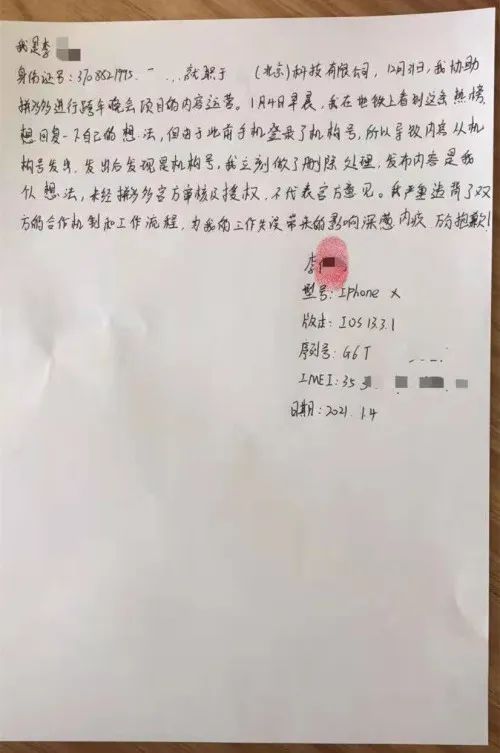 我是李
身份证号:3708621995. 就职于 (北京)科技有限公司，12月31日，我协助
拼多多进行跨年晚会项目的内容运营。1月4日早晨，我在地铁上看到这条热榜，
想回复一下自己的想法，但由于此前手机登录了机构号，所以导致内容从机
构号发出，发出后发现是机构号，我立刻做了删除处理，发布内容是我
个人想法，未经拼多多官方审核及授权，不代表官方意见。我严重违背了双
方的合作机制和工作流程，为我的工作失误带来的影响深感内疚，万分抱歉！
李
型号：IPhone X
版本：IOS 13.3.1
序列号：G6T
IMEI：35
日期：2021.1.4